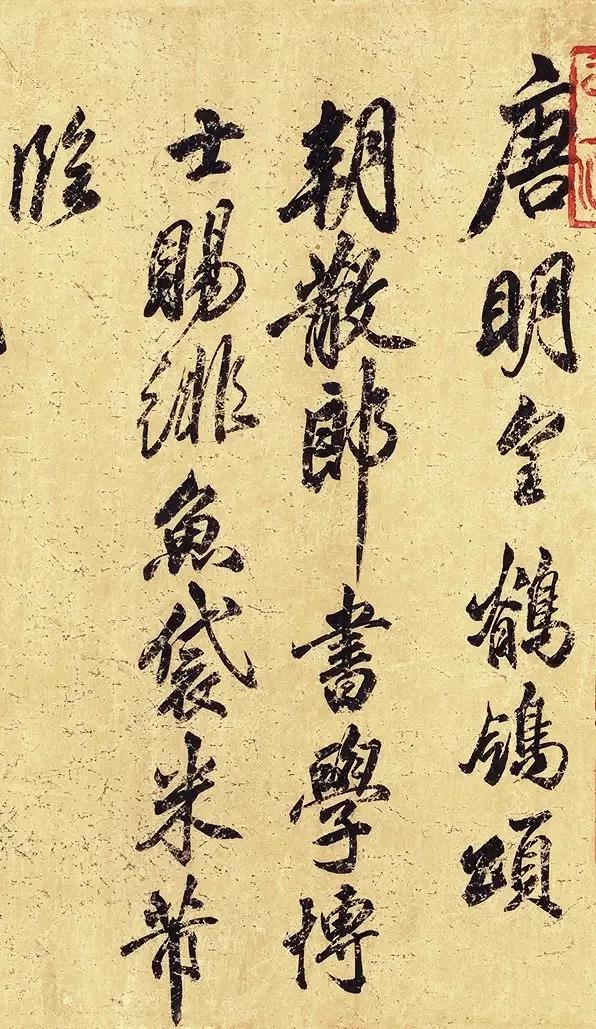 唐明皇鶺鴒頌
朝散郎書學博
士賜緋魚袋米芾
臨